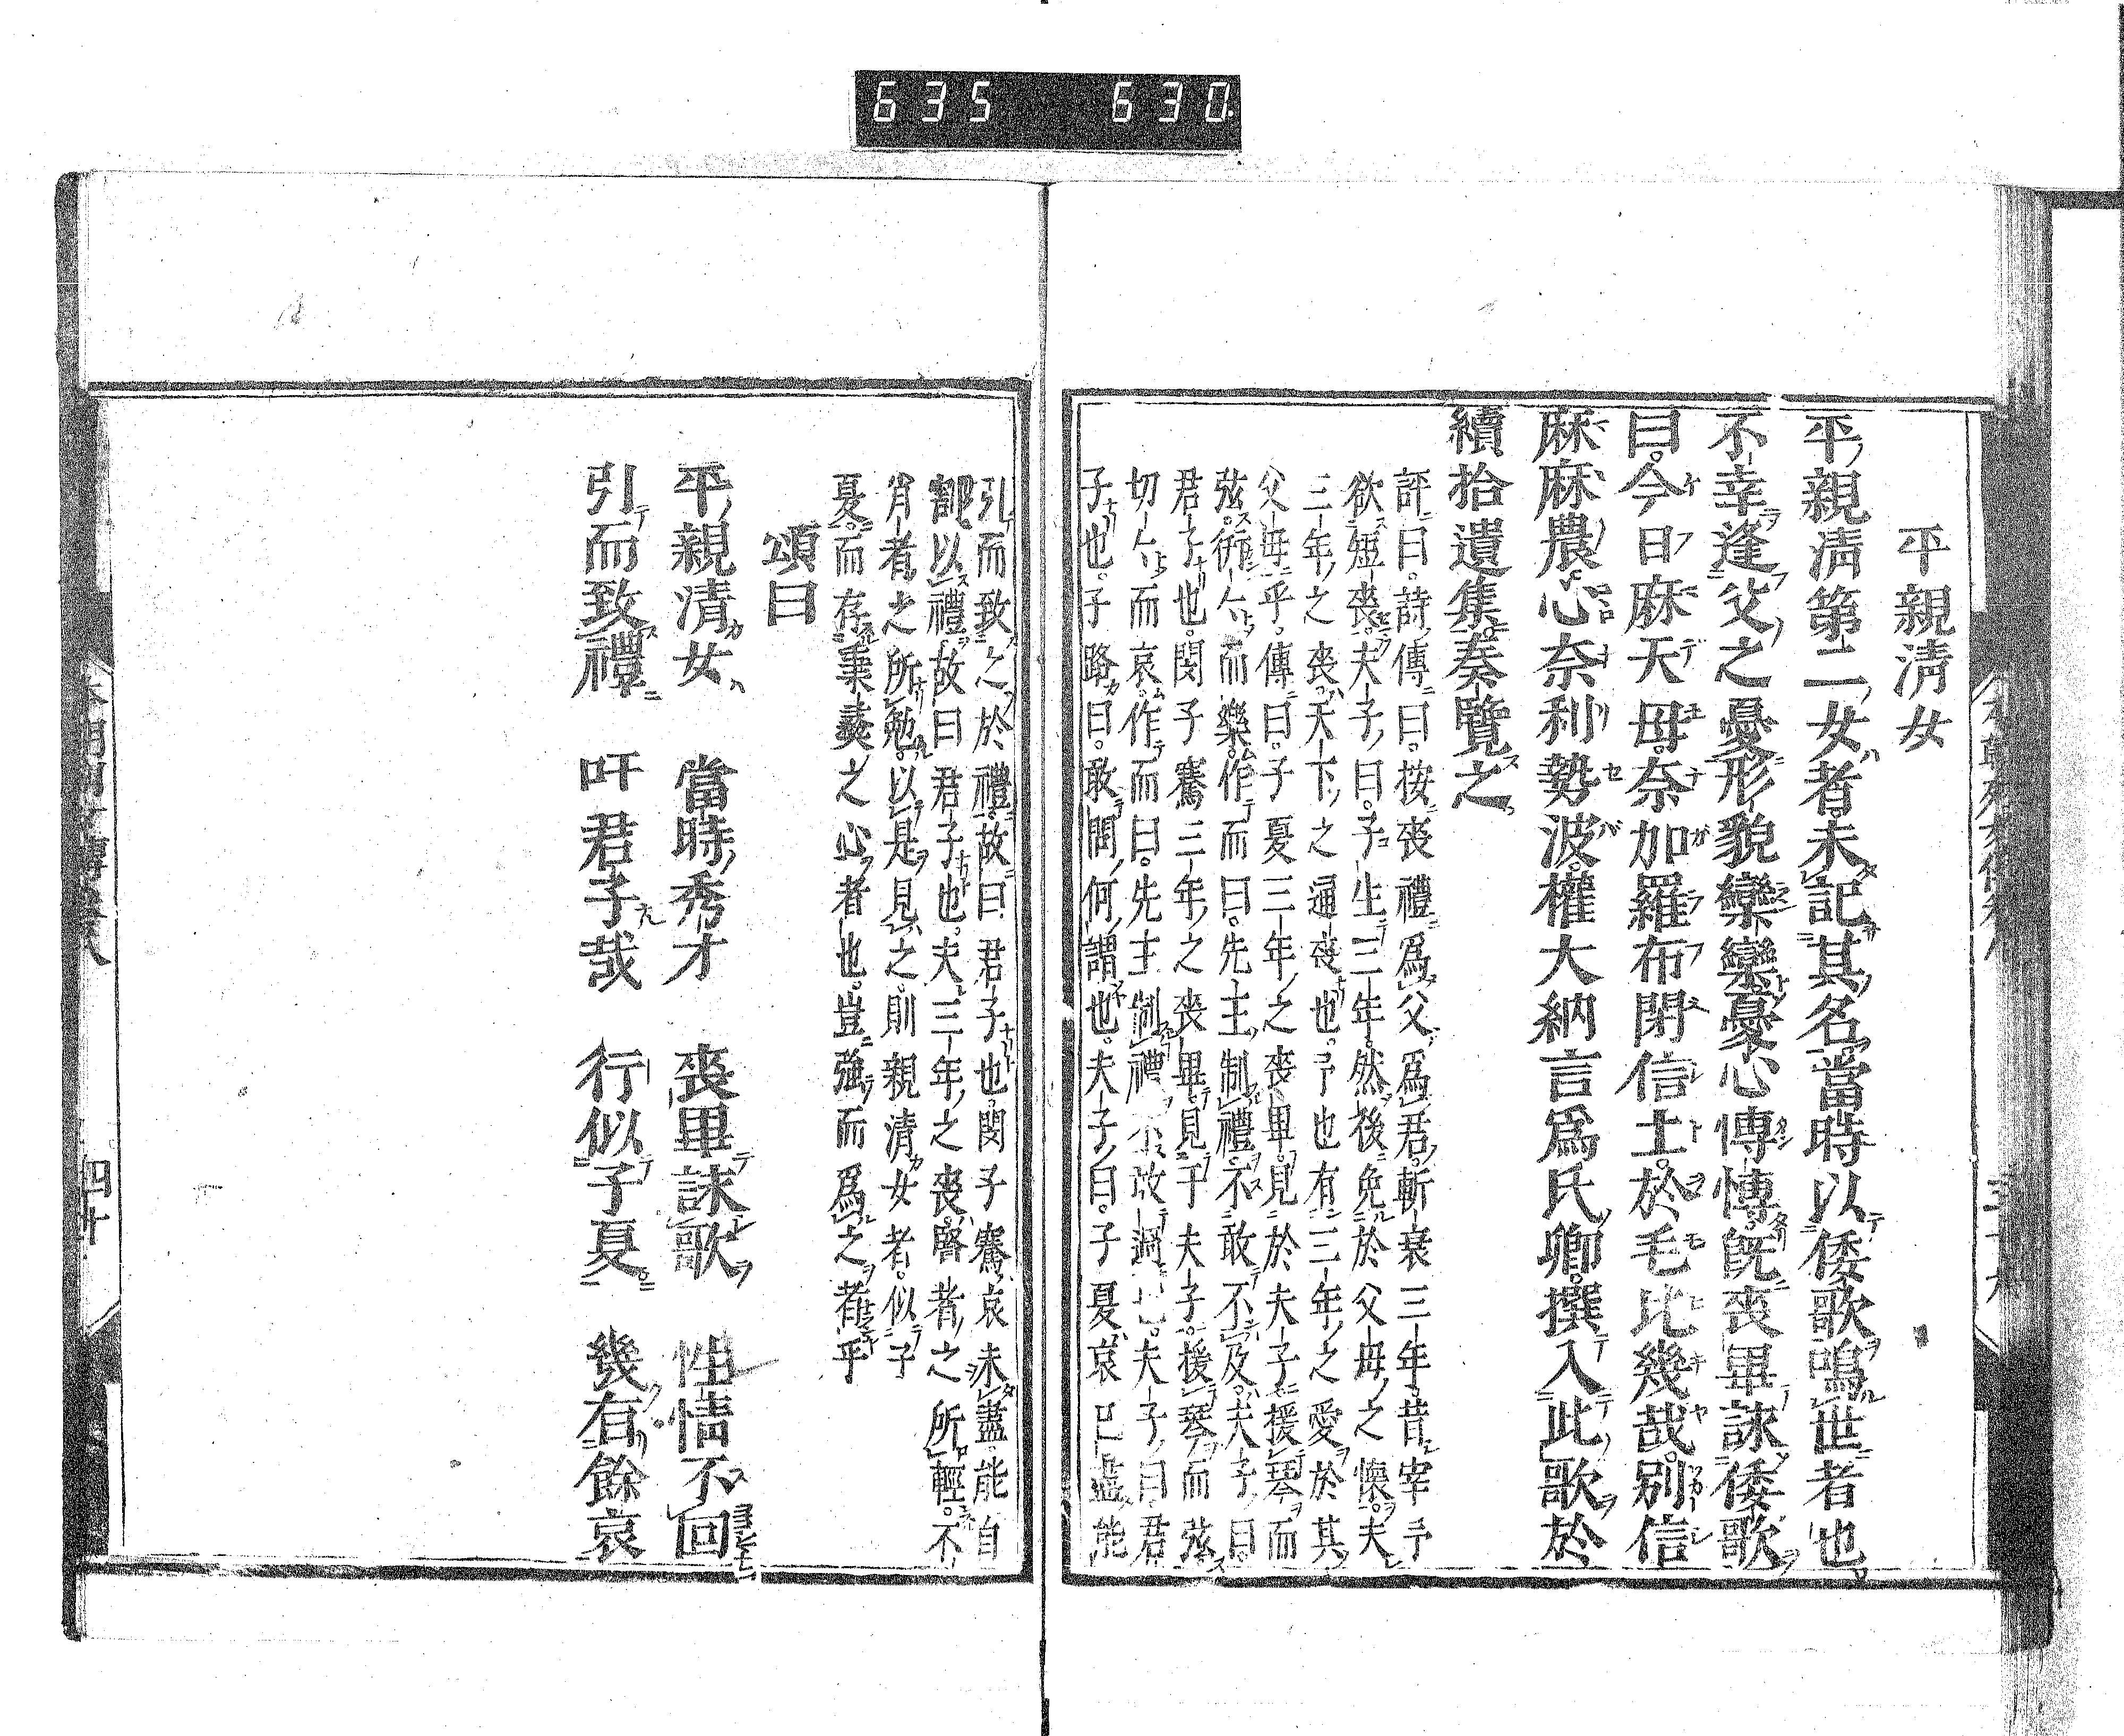 635 630
平親清女
平親清第二女者未記其名當時以倭歌鳴世者也。
不幸逢父之憂形貌欒欒憂心慱慱。既喪畢詠倭歌
曰。今日麻天母。奈加羅布閉信土。於毛比幾哉。別信
麻麻農。心奈利勢波。權大納言爲氏卿。撰入此歌於
續拾遺集。奏覽之。
評曰。詩傳曰。按喪禮爲父爲君。斬衰三年。昔宰予
欲短喪。夫子曰。子生三年。然後免於父母之懷。夫
三年之喪。天下之通喪也。予也有三年之愛於其
父母乎。傳曰。子夏三年之喪畢。見於夫子。援琴而
弦。衎衎而樂。作而曰。先王制禮。不敢不及。夫子曰。
君子也。閔子騫三年之喪畢。見于夫子。援琴而弦。
切切而哀。作而曰。先王制禮不敢過也。夫子曰。君
子也。子路曰。敢問何謂也。夫子曰。子夏哀已盡。能
引而致之於禮。故曰君子也。閔子騫哀未盡。能自
割以禮。故曰君子也。夫三年之喪。賢者之所輕。不
肖者之所勉。以是見之。則親清女者。似子
夏。而存秉彝之心者也。豈強而爲之者乎
頌曰
平親清女 當時秀才 喪畢詠歌 性情不回
引而致禮 吁君子哉 行似子夏 幾有餘哀
四十